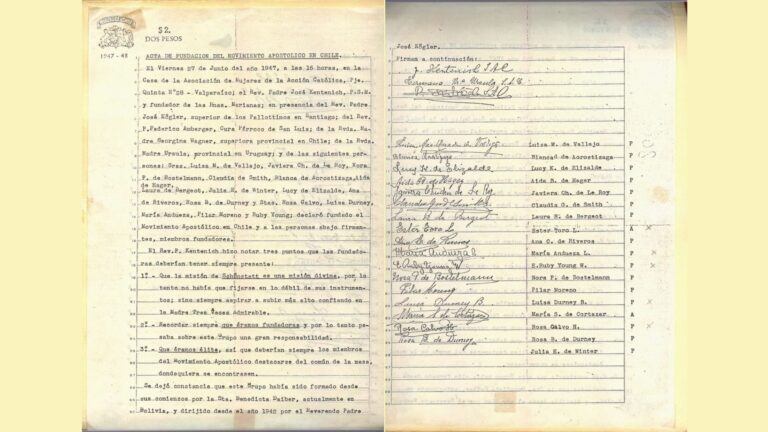 S2.
DOS PESOS
1947-48
ACTA DE FUNDACION DEL MOVIMIENTO APOSTOLICO EN CHILE.
El Viernes 27 de Junio del año 1947, a las 16 horas, en la
Casa de la Asociación de Mujeres de la Acción Católica, Pje.
Quinta N°28 - Valparaíso; el Rev. Padre José Kentenich, P.S.M
y fundador de las Hnas. Marianas; en presencia del Rev. Padre
José Kögler, superior de los Pallottinos en Santiago; del Rev.
P. Federico Amberger, Cura Párroco de San Luis; de la Rvda. Ma-
dre Georgina Wagner, superiora provincial en Chile; de la Rvda.
Madre Ursula, provincial en Uruguay; y de las siguientes per-
sonas: Sras. Luisa M. de Vallejo, Javiera Ch. de Le Roy, Nora
P. de Bostelmann, Claudia de Smith, Blanca de Azrostizaga, Aida
de Hager,
Laura de Bergeot, Julia H. de Winter, Lucy de Elizalde, Ana
de Riveros, Rosa B. de Durney y Stas. Rosa Calvo, Luisa Durney,
María Andueza, Pilar Moreno y Ruby Young; declaró fundado el
Movimiento Apostólico en Chile y a las personas abajo firman-
tes, miembros fundadores.
El Rev. P. Kentenich hizo notar tres puntos que las fundado-
ras deberían tener siempre presente:
1° - Que la misión de Schönstatt es una misión divina, por lo
tanto no había que fijarse en lo débil de sus instrumen-
tos; sino siempre aspirar a subir más alto confiando en
la Madre Tres Veces Admirable.
2° - Recordar siempre que éramos fundadores y por lo tanto pe-
saba sobre este grupo una gran responsabilidad.
3° - Que éramos élite, así que deberían siempre los miembros
del Movimiento Apostólico destacarse del común de la masa,
dondequiera se encontrasen.
Se dejó constancia que este Grupo había sido formado desde
sus comienzos por la Sta. Benedicta Daiber, actualmente en
Bolivia, y dirijido desde el año 1942 por el Reverendo Padre
José Kögler.
Firman a continuación:
J. Kentenich S.A.C
Luisa M. de Vallejo P
Blanca G de Azrostizaga P
Lucy K. de Elizalde P
Aida B. de Hager P
Javiera Ch. de Le Roy P
Claudia G. de Smith P
Laura H. de Bergeot P
Ester Toro L. A
Ana C. de Riveros P
María Andueza L. P
E. Ruby Young W. P
Nora P. de Bostelmann P
Pilar Moreno P
Luisa Durney B. P
María S. de Cortazar A
Rosa Calvo H. P
Rosa B. de Durney P
Julia H. de Winter P